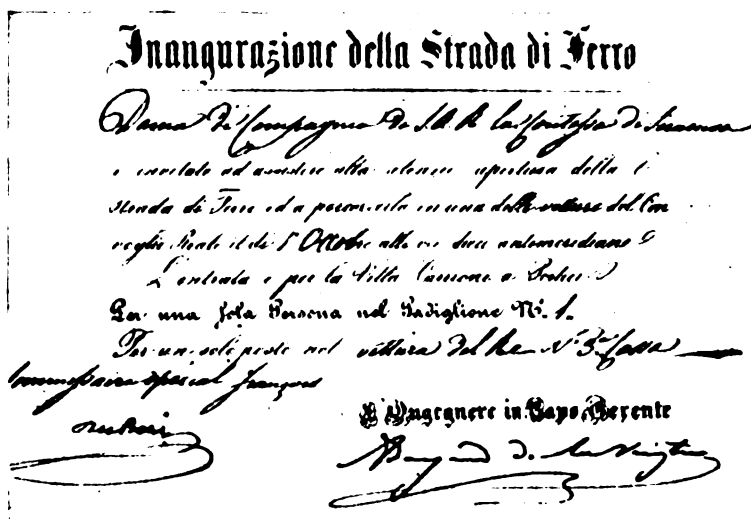 Inaugurazione della Strada di Ferro
Dama di Compagnia di S. A. R. la Contessa di
è invitata ad assistere alla solenne apertura della
strada di Ferro ed a percorrerla in una delle vetture del Con
voglio Reale il dì 1° Ottobre alle ore dieci antemeridiane
L'entrata è per la Villa Carrione a
Per una sola Persona nel Padiglione N.º 1.
Per un solo posto nel vettura del Re N.º 3ª Cassa
Commessaire spécial français
L'Ingegnere in Capo Gerente
Bayard de la Vingtrie